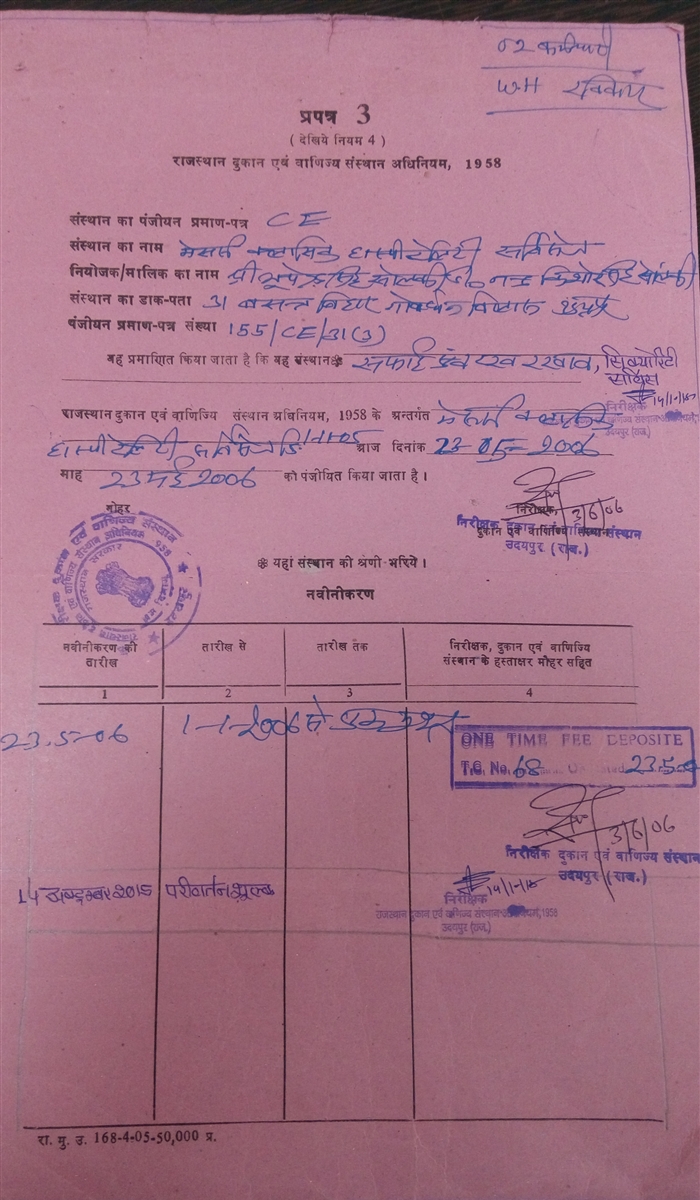 02 कर्मचारी
WH रविवार
प्रपत्र 3
( देखिये नियम 4 )
राजस्थान दुकान एवं वाणिज्य संस्थान अधिनियम, 1958
संस्थान का पंजीयन प्रमाण-पत्र CE
संस्थान का नाम मेसर्स क्लासिक हास्पीटेलिटी सर्विसेज
नियोजक/मालिक का नाम श्री भूपेन्द्र सिंह सोलंकी नन्द किशोर सिंह सोलंकी
संस्थान का डाक-पता 31 बसन्त विहार गोवर्धन विलास उदयपुर
पंजीयन प्रमाण-पत्र संख्या 155/CE/31(3)
यह प्रमाणित किया जाता है कि यह संस्थान❊ सफाई एवं रख रखाव, सिक्योरिटी
सर्विस
निरीक्षक
राजस्थान दुकान एवं वाणिज्यि संस्थान अधिनियम, 1958 के अन्तर्गत मेसर्स क्लासिक
हास्पीटेलिटी सर्विसेज आज दिनांक 23-05-2006
माह 23 मई 2006 को पंजीयित किया जाता है।
मोहर
3/6/06
निरीक्षक,
दुकान एवं वाणिज्य संस्थान
निरीक्षक दुकान एवं वाणिज्य संस्थान
उदयपुर (राज.)
❊ यहां संस्थान की श्रेणी भरिये।
नवीनीकरण
नवीनीकरण की तारीख
तारीख से
तारीख तक
निरीक्षक, दुकान एवं वाणिज्यि
संस्थान के हस्ताक्षर मौहर सहित
1 2 3 4
23.5-06 1-1-2006 से
ONE TIME FEE DEPOSITE
T.C. No. 68
3/6/06
निरीक्षक दुकान एवं वाणिज्य संस्थान
उदयपुर (राज.)
14 अक्टूम्बर 2015 परीवर्तन शुल्क
निरीक्षक
उदयपुर (राज.)
रा. मु. उ. 168-4-05-50,000 प्र.